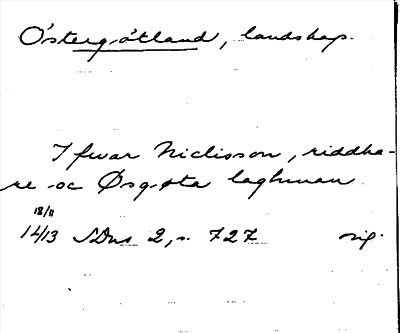 Östergötland, landskap.
Ifwar Niclisson, riddha-
re oc Øsgøta laghman
18/11
1413 SDns 2, s. 727 orig.